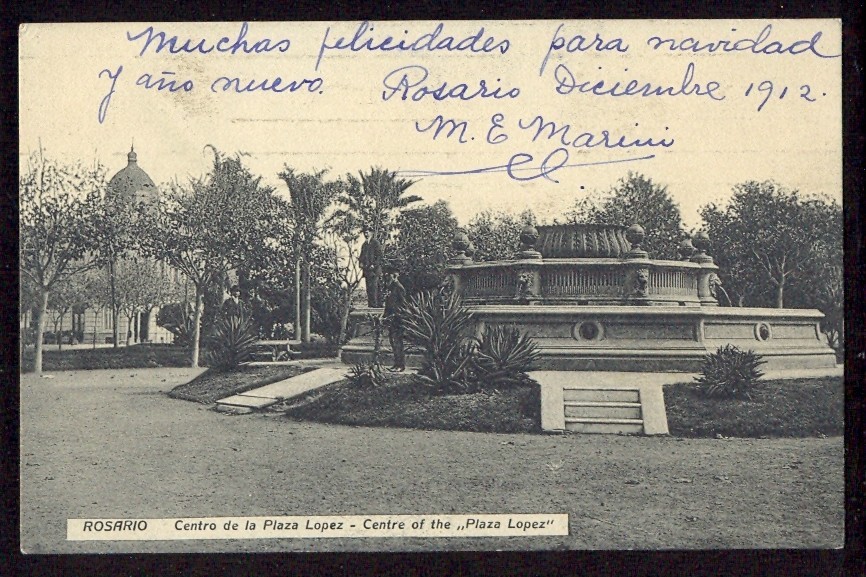 Muchas felicidades para navidad
y año nuevo. Rosario Diciembre 1912.
M. E Marini
ROSARIO Centro de la Plaza Lopez - Centre of the „Plaza Lopez"